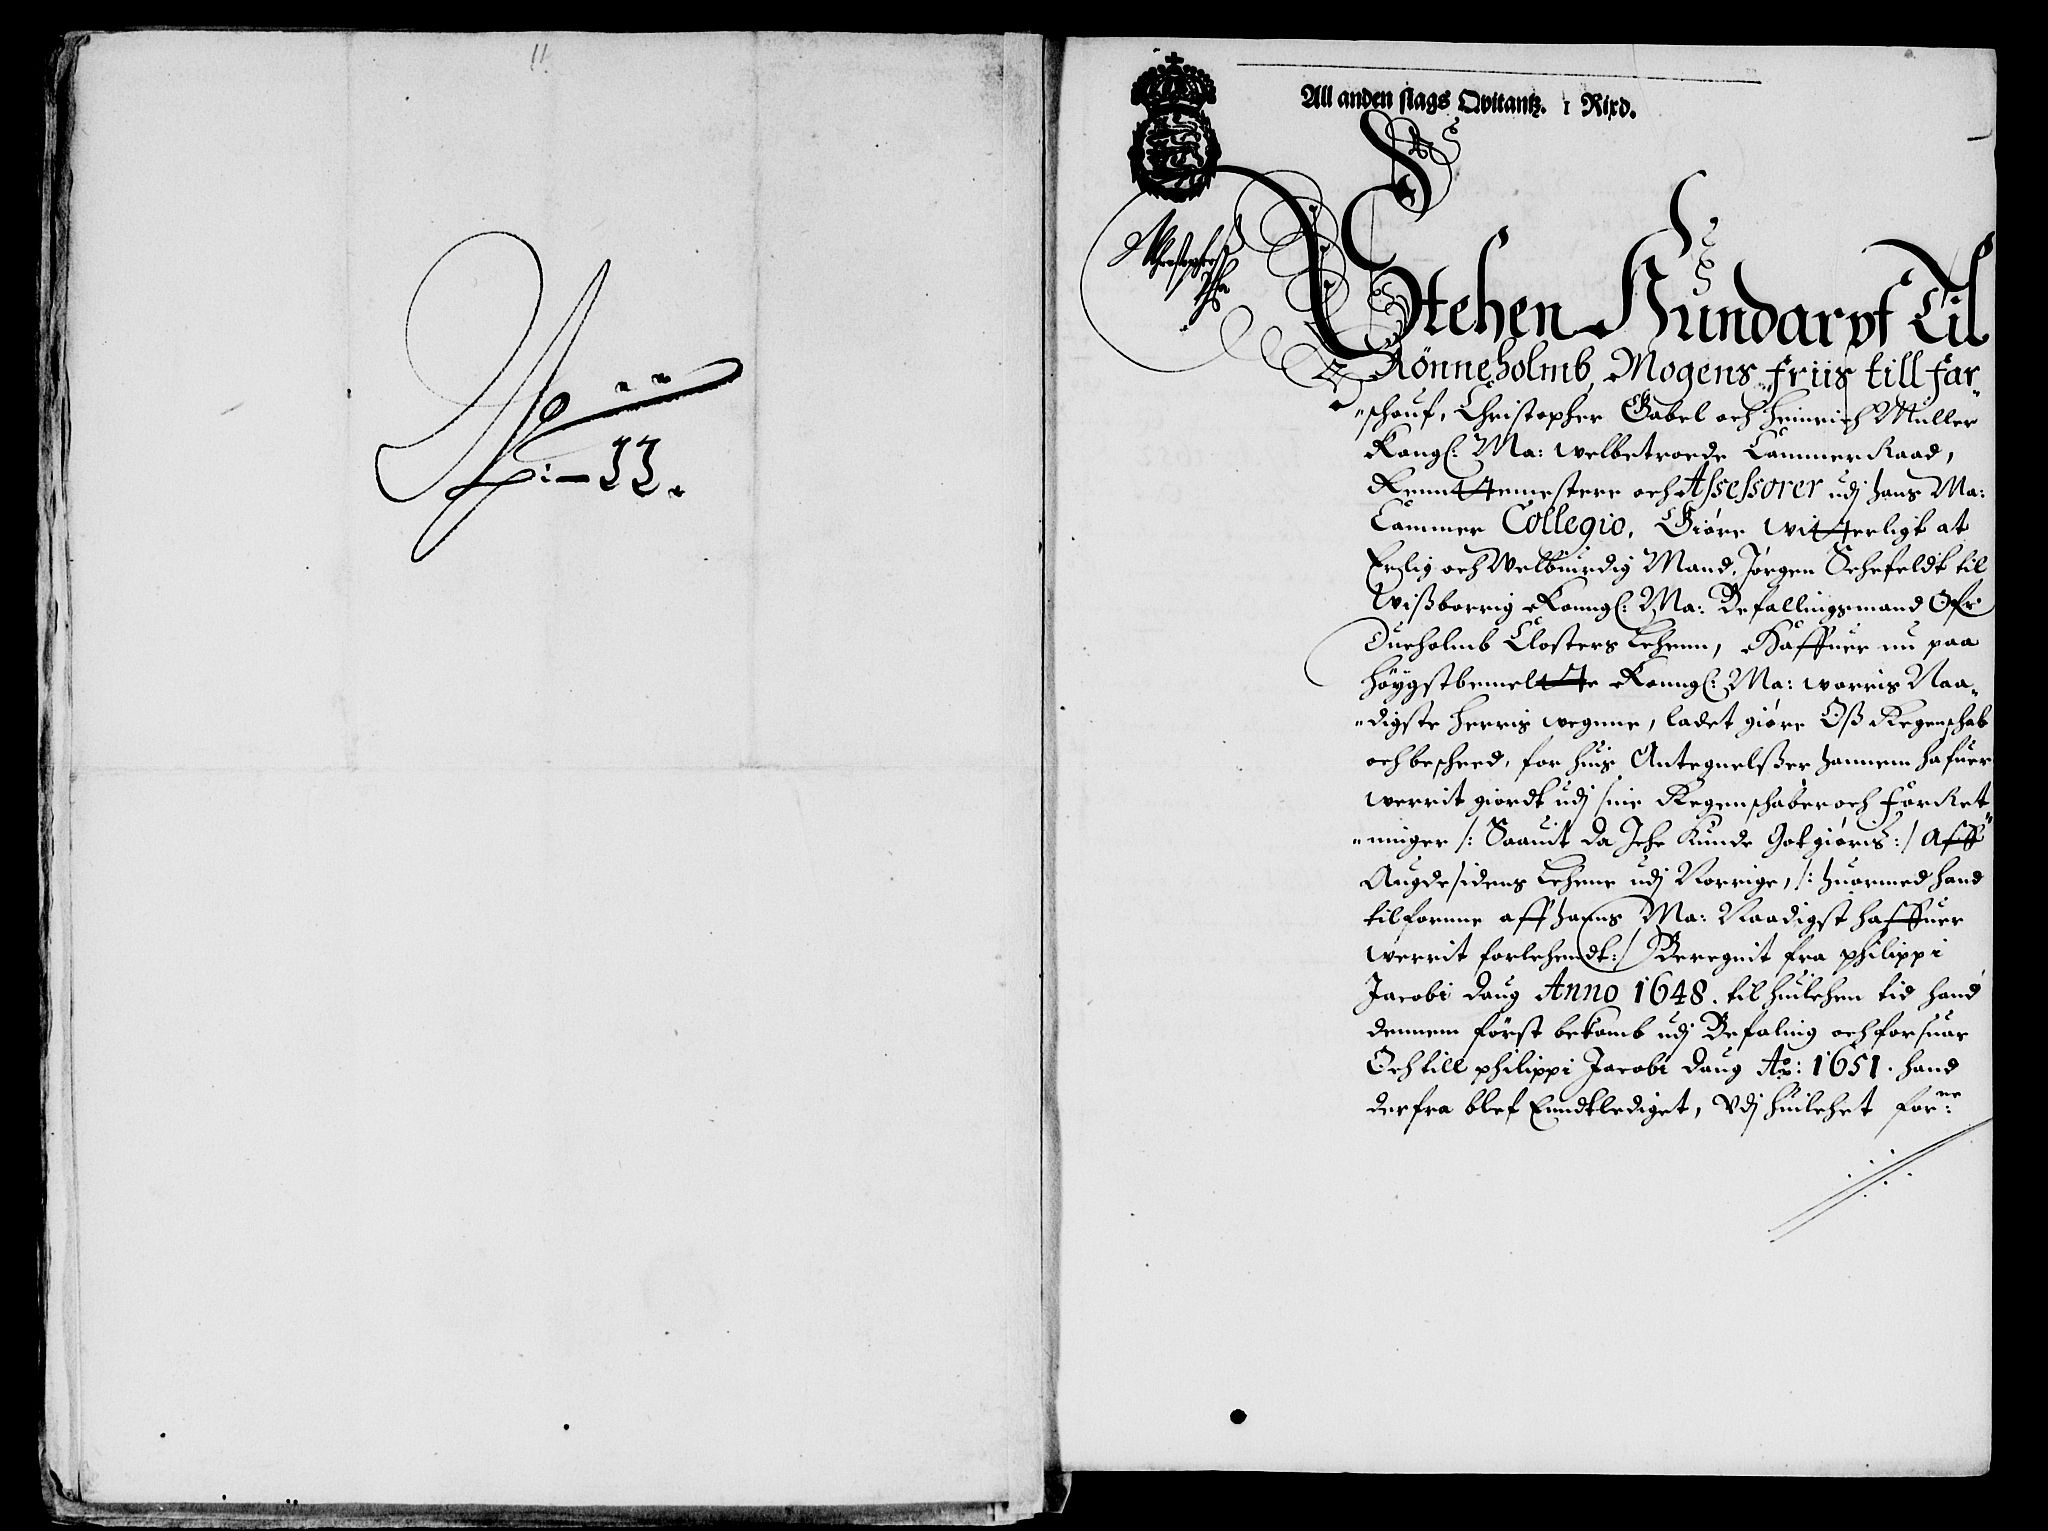 11
No
: 11.
All anden slags Qvitantz. 1 Rixd.
Stehen Hundarpf Til
Rönneholmb, Mogens friis till Far„
„schouf, Christopher Gabel och Heinrich Müller
Kongl: Ma: welbetroede Cammer Raad,
Renttemestere och Assessorer udj hans Ma:
Cammer Collegio, Giöre witterligt at
Erlig och Welbiurdig Mand, Jörgen Sehefeldt til
Wißborrig Konngl: Ma: Befallingsmand Ofr
Dueholmb Closters Lehenn, Haffuer nu paa
höygstbemeltte Konngl: Ma: worris Naa„
„digste Herris wegnne, ladet giöre Oß Regenschab
och bescheed, for huis Antegnelßer hannem hafuer
werrit giordt udj sine Regenschaber och ForRet„
„ninger /: Saauit da Iche kunde Gotgiöris :/ Aff
Augdesidens Lehene udj Norrige, /: huormed hand
tilfornne aff hanns Ma: Naadigst haffuer
werrit forlehendt :/ Beregnit fra Philippi
Jacobi Daug Anno 1648. til huilchen tid hand
dennem först bekomb udj Befaling och forsuar
Och till philippi Jacobi Daug Ao: 1651. hand
derfra blef Enndtlediget, Vdj huilchet forne: